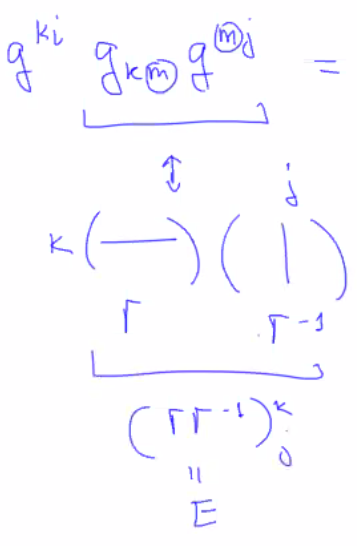 g^{ki} g_{km} g^{mj} =
↕
j
k (—) ( | )
Γ Γ^{-1}
(ΓΓ^{-1})^k_j
=
E